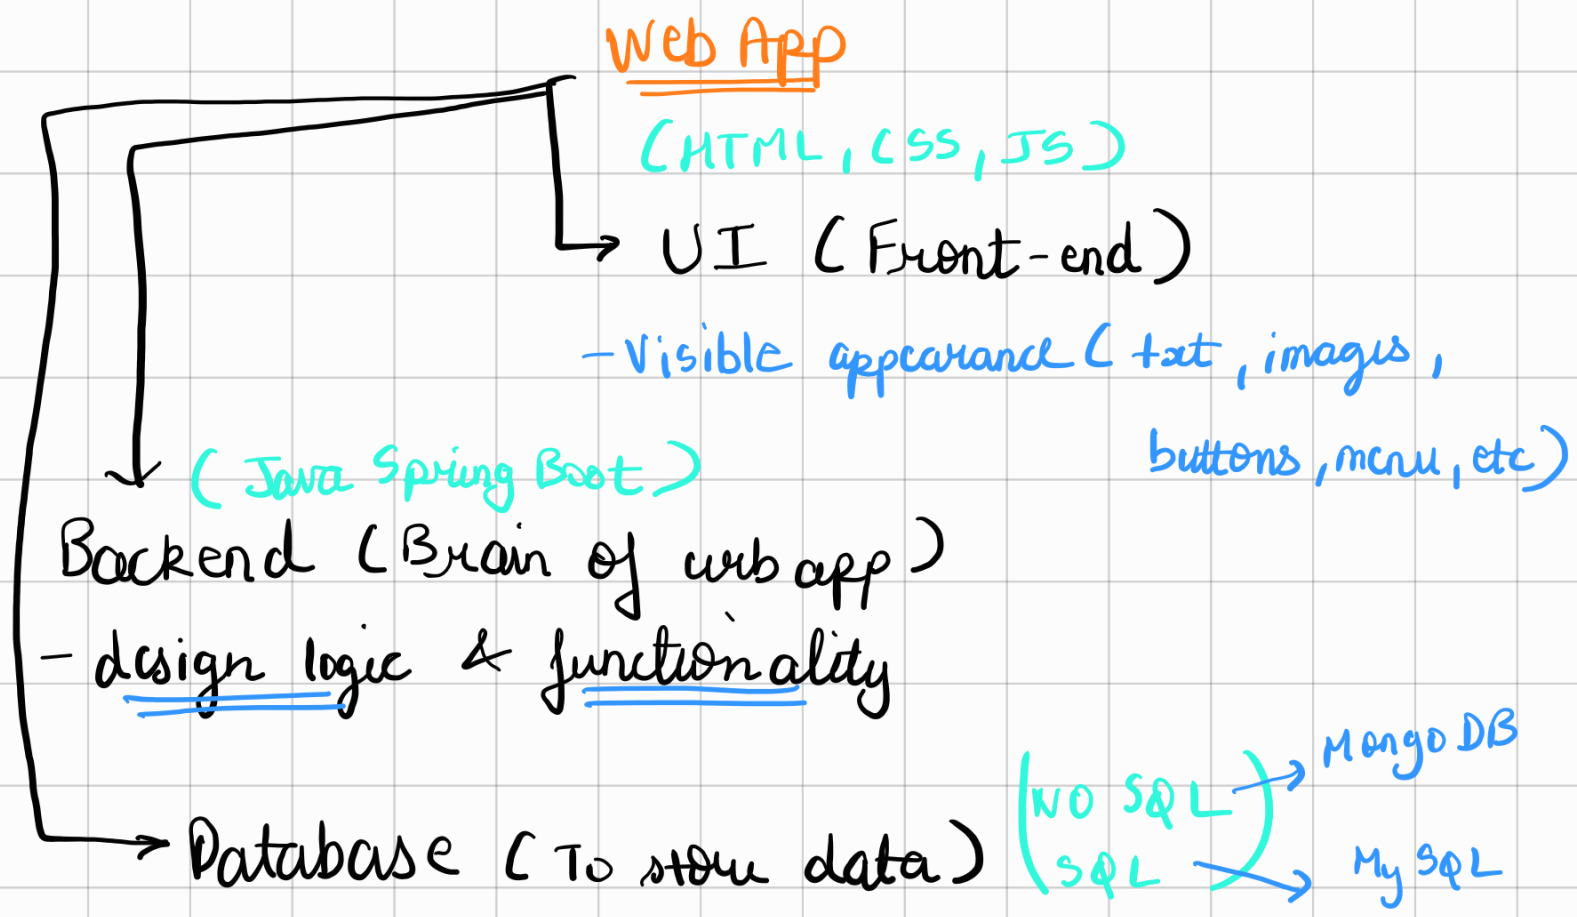 Web App
(HTML, CSS, JS)
UI (Front-end)
- Visible appearance (text, images,
buttons, menu, etc)
(Java Spring Boot)
Backend (Brain of web app)
- design logic & functionality
Database (To store data) (NO SQL → MongoDB
SQL) → My SQL